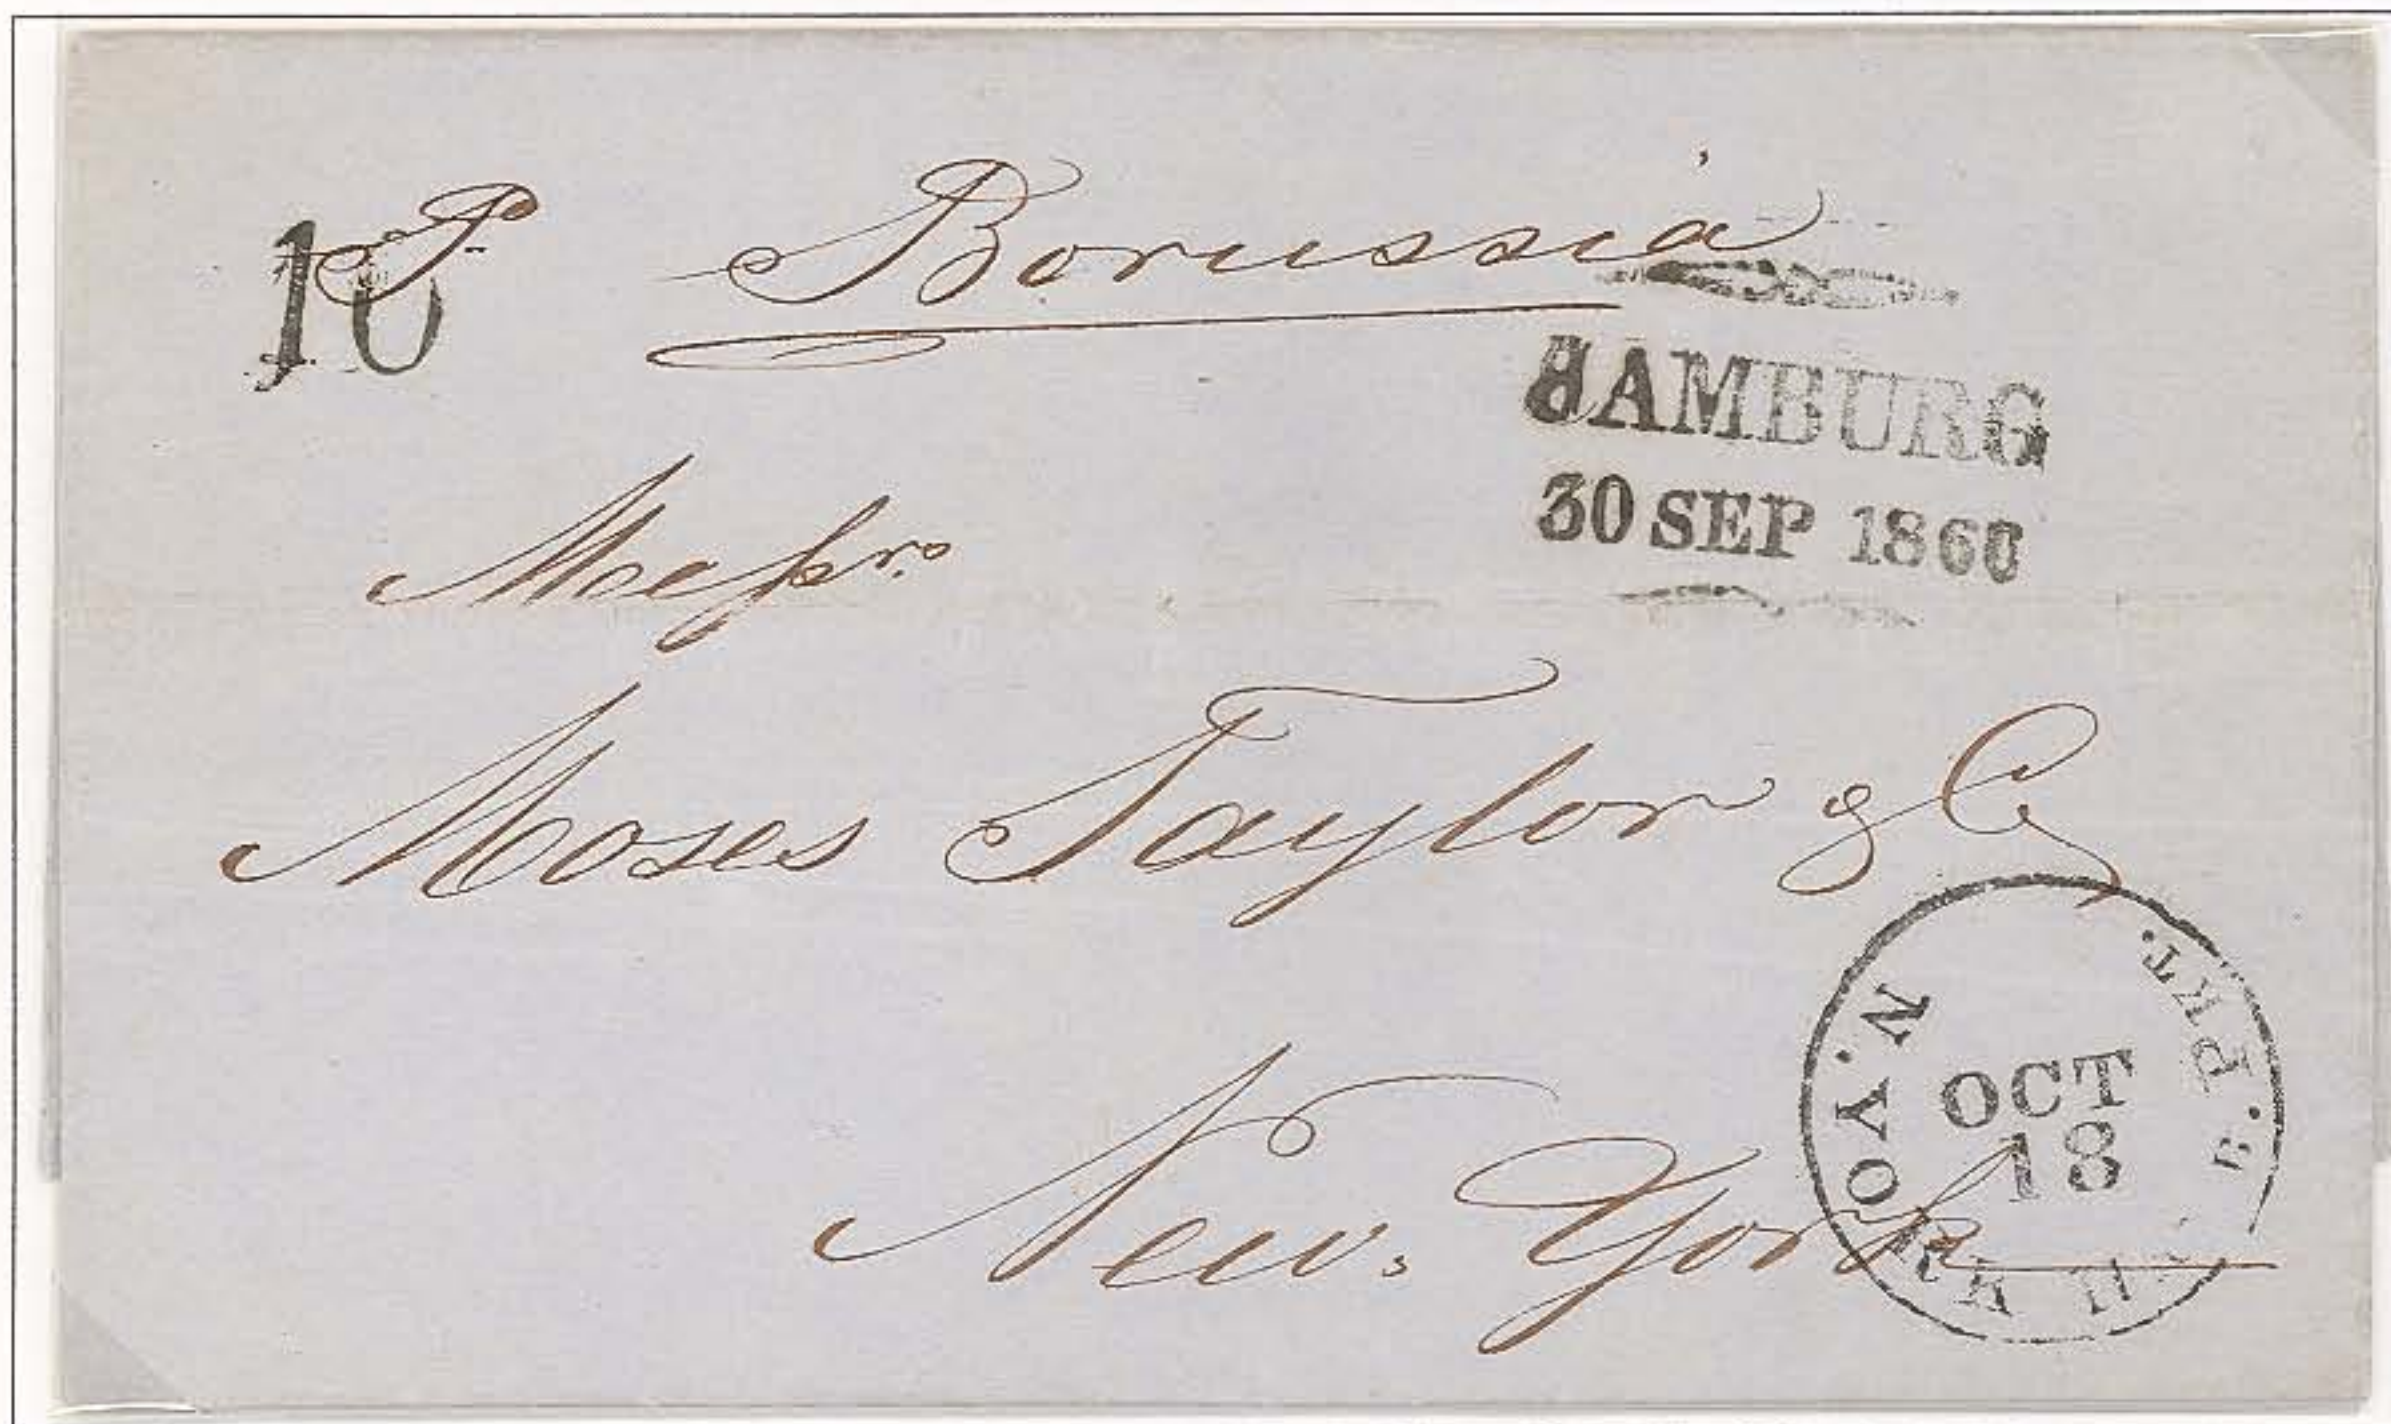 10
P Borussia
HAMBURG
30 SEP 1860
Messrs
Moses Taylor & Co
New York
N. YORK HAM. PKT.
OCT
18